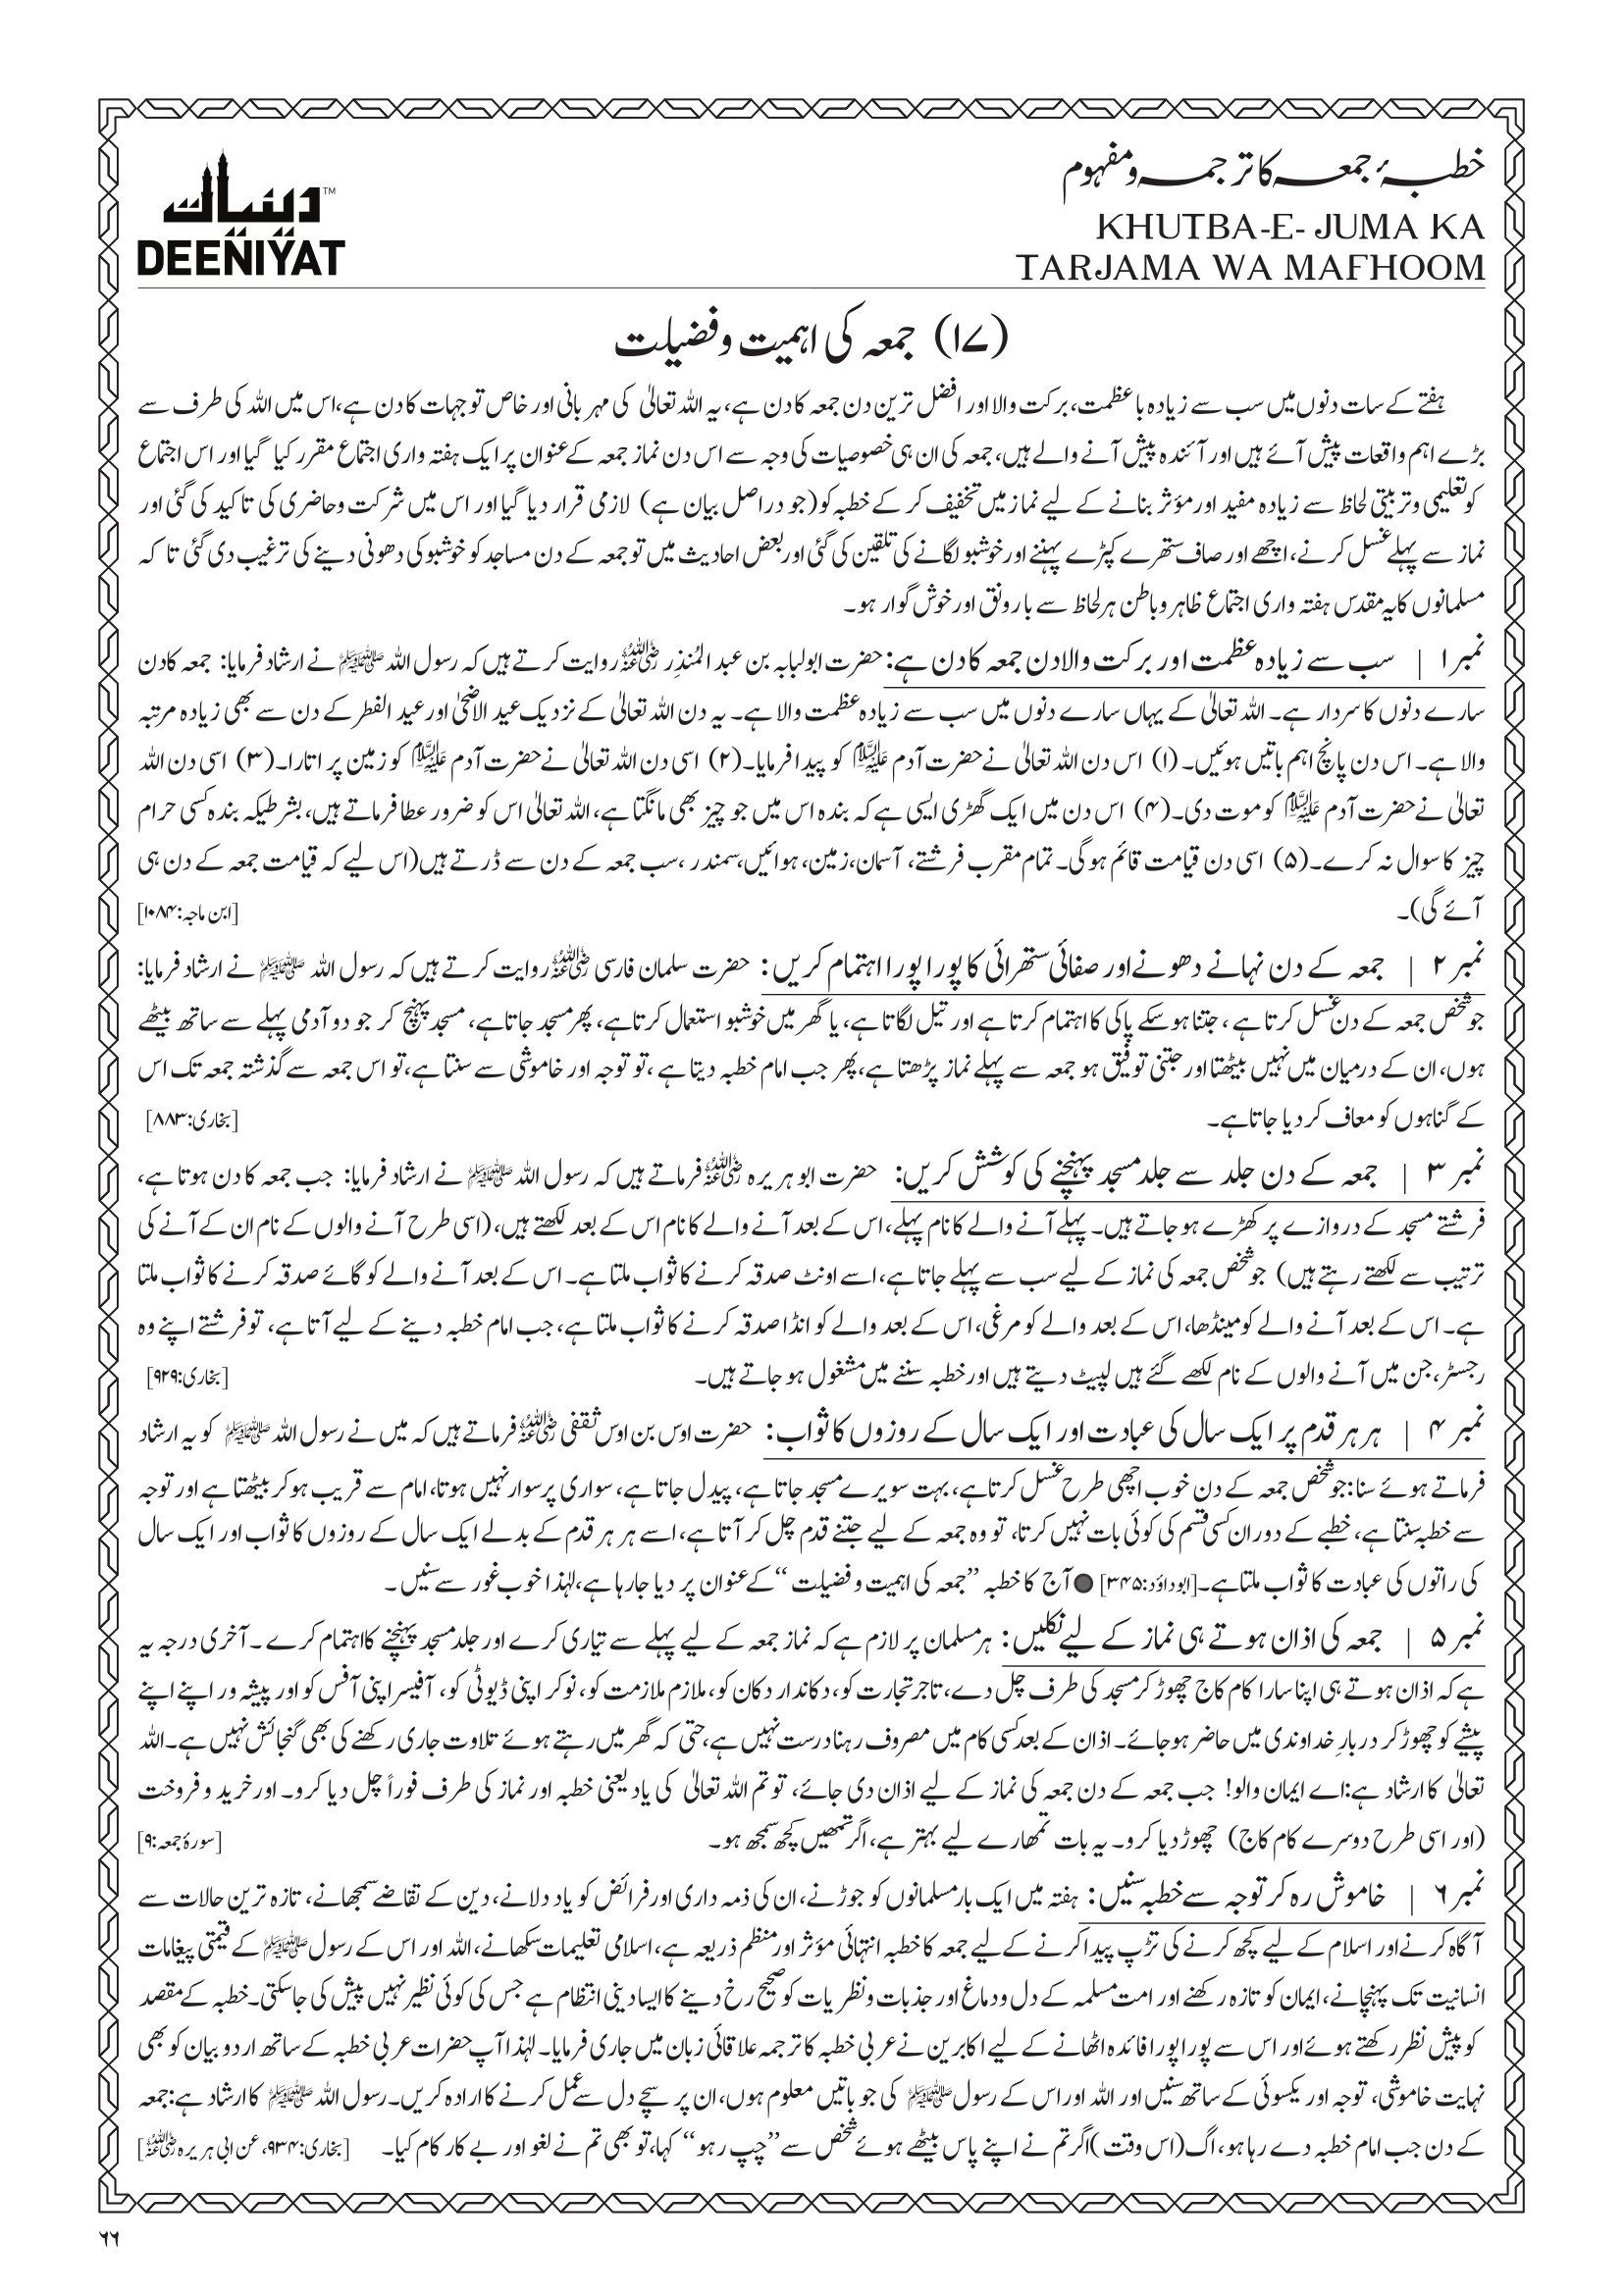 خطبۂ جمعہ کا ترجمہ ومفہوم
دینیات™
DEENIYAT
KHUTBA-E- JUMA KA
TARJAMA WA MAFHOOM
(۱۷) جمعہ کی اہمیت وفضیلت
ہفتے کے سات دنوں میں سب سے زیادہ باعظمت، برکت والا اور افضل ترین دن جمعہ کا دن ہے، یہ اللہ تعالیٰ کی مہربانی اور خاص توجہات کا دن ہے، اس میں اللہ کی طرف سے
بڑے اہم واقعات پیش آئے ہیں اور آئندہ پیش آنے والے ہیں، جمعہ کی ان ہی خصوصیات کی وجہ سے اس دن نماز جمعہ کے عنوان پر ایک ہفتہ واری اجتماع مقرر کیا گیا اور اس اجتماع
کو تعلیمی وتربیتی لحاظ سے زیادہ مفید اور مؤثر بنانے کے لیے نماز میں تخفیف کر کے خطبہ کو (جو دراصل بیان ہے) لازمی قرار دیا گیا اور اس میں شرکت وحاضری کی تاکید کی گئی اور
نماز سے پہلے غسل کرنے، اچھے اور صاف ستھرے کپڑے پہننے اور خوشبو لگانے کی تلقین کی گئی اور بعض احادیث میں تو جمعہ کے دن مساجد کو خوشبو کی دھونی دینے کی ترغیب دی گئی تا کہ
مسلمانوں کا یہ مقدس ہفتہ واری اجتماع ظاہر وباطن ہر لحاظ سے بارونق اور خوش گوار ہو۔
نمبر ۱ | سب سے زیادہ عظمت اور برکت والا دن جمعہ کا دن ہے: حضرت ابولبابہ بن عبد المُنذِر رضی اللہ عنہ روایت کرتے ہیں کہ رسول اللہ ﷺ نے ارشاد فرمایا: جمعہ کا دن
سارے دنوں کا سردار ہے۔ اللہ تعالیٰ کے یہاں سارے دنوں میں سب سے زیادہ عظمت والا ہے۔ یہ دن اللہ تعالیٰ کے نزدیک عید الاضحیٰ اور عید الفطر کے دن سے بھی زیادہ مرتبہ
والا ہے۔ اس دن پانچ اہم باتیں ہوئیں۔ (۱) اس دن اللہ تعالیٰ نے حضرت آدم علیہ السلام کو پیدا فرمایا۔ (۲) اسی دن اللہ تعالیٰ نے حضرت آدم علیہ السلام کو زمین پر اتارا۔ (۳) اسی دن اللہ
تعالیٰ نے حضرت آدم علیہ السلام کو موت دی۔ (۴) اس دن میں ایک گھڑی ایسی ہے کہ بندہ اس میں جو چیز بھی مانگتا ہے، اللہ تعالیٰ اس کو ضرور عطا فرماتے ہیں، بشرطیکہ بندہ کسی حرام
چیز کا سوال نہ کرے۔ (۵) اسی دن قیامت قائم ہوگی۔ تمام مقرب فرشتے، آسمان، زمین، ہوائیں، سمندر، سب جمعہ کے دن سے ڈرتے ہیں (اس لیے کہ قیامت جمعہ کے دن ہی
آئے گی)۔ [ابن ماجہ: ۱۰۸۴]
نمبر ۲ | جمعہ کے دن نہانے دھونے اور صفائی ستھرائی کا پورا پورا اہتمام کریں: حضرت سلمان فارسی رضی اللہ عنہ روایت کرتے ہیں کہ رسول اللہ ﷺ نے ارشاد فرمایا:
جو شخص جمعہ کے دن غسل کرتا ہے، جتنا ہو سکے پاکی کا اہتمام کرتا ہے اور تیل لگاتا ہے، یا گھر میں خوشبو استعمال کرتا ہے، پھر مسجد جاتا ہے، مسجد پہنچ کر جو دو آدمی پہلے سے ساتھ بیٹھے
ہوں، ان کے درمیان میں نہیں بیٹھتا اور جتنی توفیق ہو جمعہ سے پہلے نماز پڑھتا ہے، پھر جب امام خطبہ دیتا ہے، تو توجہ اور خاموشی سے سنتا ہے، تو اس جمعہ سے گذشتہ جمعہ تک اس
کے گناہوں کو معاف کر دیا جاتا ہے۔ [بخاری: ۸۸۳]
نمبر ۳ | جمعہ کے دن جلد سے جلد مسجد پہنچنے کی کوشش کریں: حضرت ابو ہریرہ رضی اللہ عنہ فرماتے ہیں کہ رسول اللہ ﷺ نے ارشاد فرمایا: جب جمعہ کا دن ہوتا ہے،
فرشتے مسجد کے دروازے پر کھڑے ہو جاتے ہیں۔ پہلے آنے والے کا نام پہلے، اس کے بعد آنے والے کا نام اس کے بعد لکھتے ہیں، (اسی طرح آنے والوں کے نام ان کے آنے کی
ترتیب سے لکھتے رہتے ہیں) جو شخص جمعہ کی نماز کے لیے سب سے پہلے جاتا ہے، اسے اونٹ صدقہ کرنے کا ثواب ملتا ہے۔ اس کے بعد آنے والے کو گائے صدقہ کرنے کا ثواب ملتا
ہے۔ اس کے بعد آنے والے کو مینڈھا، اس کے بعد والے کو مرغی، اس کے بعد والے کو انڈا صدقہ کرنے کا ثواب ملتا ہے، جب امام خطبہ دینے کے لیے آتا ہے، تو فرشتے اپنے وہ
رجسٹر، جن میں آنے والوں کے نام لکھے گئے ہیں لپیٹ دیتے ہیں اور خطبہ سننے میں مشغول ہو جاتے ہیں۔ [بخاری: ۹۲۹]
نمبر ۴ | ہر ہر قدم پر ایک سال کی عبادت اور ایک سال کے روزوں کا ثواب: حضرت اوس بن اوس ثقفی رضی اللہ عنہ فرماتے ہیں کہ میں نے رسول اللہ ﷺ کو یہ ارشاد
فرماتے ہوئے سنا: جو شخص جمعہ کے دن خوب اچھی طرح غسل کرتا ہے، بہت سویرے مسجد جاتا ہے، پیدل جاتا ہے، سواری پر سوار نہیں ہوتا، امام سے قریب ہو کر بیٹھتا ہے اور توجہ
سے خطبہ سنتا ہے، خطبے کے دوران کسی قسم کی کوئی بات نہیں کرتا، تو وہ جمعہ کے لیے جتنے قدم چل کر آتا ہے، اسے ہر ہر قدم کے بدلے ایک سال کے روزوں کا ثواب اور ایک سال
کی راتوں کی عبادت کا ثواب ملتا ہے۔ [ابوداؤد: ۳۴۵] ● آج کا خطبہ ”جمعہ کی اہمیت و فضیلت“ کے عنوان پر دیا جا رہا ہے، لہٰذا خوب غور سے سنیں۔
نمبر ۵ | جمعہ کی اذان ہوتے ہی نماز کے لیے نکلیں: ہر مسلمان پر لازم ہے کہ نماز جمعہ کے لیے پہلے سے تیاری کرے اور جلد مسجد پہنچنے کا اہتمام کرے۔ آخری درجہ یہ
ہے کہ اذان ہوتے ہی اپنا سارا کام کاج چھوڑ کر مسجد کی طرف چل دے، تاجر تجارت کو، دکاندار دکان کو، ملازم ملازمت کو، نوکر اپنی ڈیوٹی کو، آفیسر اپنی آفس کو اور پیشہ ور اپنے اپنے
پیشے کو چھوڑ کر دربارِ خداوندی میں حاضر ہو جائے۔ اذان کے بعد کسی کام میں مصروف رہنا درست نہیں ہے، حتی کہ گھر میں رہتے ہوئے تلاوت جاری رکھنے کی بھی گنجائش نہیں ہے۔ اللہ
تعالیٰ کا ارشاد ہے: اے ایمان والو! جب جمعہ کے دن جمعہ کی نماز کے لیے اذان دی جائے، تو تم اللہ تعالیٰ کی یاد یعنی خطبہ اور نماز کی طرف فوراً چل دیا کرو۔ اور خرید و فروخت
(اور اسی طرح دوسرے کام کاج) چھوڑ دیا کرو۔ یہ بات تمھارے لیے بہتر ہے، اگر تمھیں کچھ سمجھ ہو۔ [سورۂ جمعہ: ۹]
نمبر ۶ | خاموش رہ کر توجہ سے خطبہ سنیں: ہفتہ میں ایک بار مسلمانوں کو جوڑنے، ان کی ذمہ داری اور فرائض کو یاد دلانے، دین کے تقاضے سمجھانے، تازہ ترین حالات سے
آگاہ کرنے اور اسلام کے لیے کچھ کرنے کی تڑپ پیدا کرنے کے لیے جمعہ کا خطبہ انتہائی مؤثر اور منظم ذریعہ ہے، اسلامی تعلیمات سکھانے، اللہ اور اس کے رسول ﷺ کے قیمتی پیغامات
انسانیت تک پہنچانے، ایمان کو تازہ رکھنے اور امت مسلمہ کے دل ودماغ اور جذبات ونظریات کو صحیح رخ دینے کا ایسا دینی انتظام ہے جس کی کوئی نظیر نہیں پیش کی جا سکتی۔ خطبہ کے مقصد
کو پیش نظر رکھتے ہوئے اور اس سے پورا پورا فائدہ اٹھانے کے لیے اکابرین نے عربی خطبہ کا ترجمہ علاقائی زبان میں جاری فرمایا۔ لہٰذا آپ حضرات عربی خطبہ کے ساتھ اردو بیان کو بھی
نہایت خاموشی، توجہ اور یکسوئی کے ساتھ سنیں اور اللہ اور اس کے رسول ﷺ کی جو باتیں معلوم ہوں، ان پر سچے دل سے عمل کرنے کا ارادہ کریں۔ رسول اللہ ﷺ کا ارشاد ہے: جمعہ
کے دن جب امام خطبہ دے رہا ہو، اگ (اس وقت) اگر تم نے اپنے پاس بیٹھے ہوئے شخص سے ”چپ رہو“ کہا، تو بھی تم نے لغو اور بے کار کام کیا۔ [بخاری: ۹۳۴، عن ابی ہریرہ رضی اللہ عنہ]
۶۶